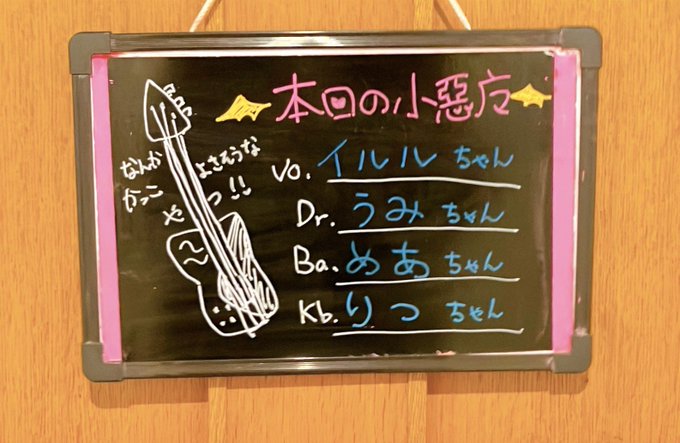 本回の小惡庁
Vo. イルル ちゃん
Dr. うみ ちゃん
Ba. めあ ちゃん
Kb. りつ ちゃん
なんか
かっこ
よさそうな
やつ!!